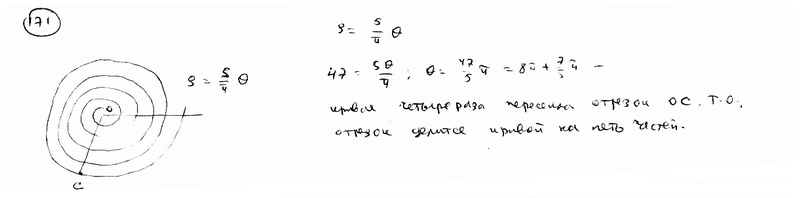 171
ρ = 5/π θ
ρ = 5/π θ
47 = 5θ/π ; θ = 47/5 π = 8π + 7/5 π —
кривая четыре раза пересекла отрезок OC. Т.О.,
отрезок делится кривой на пять частей.
O
C